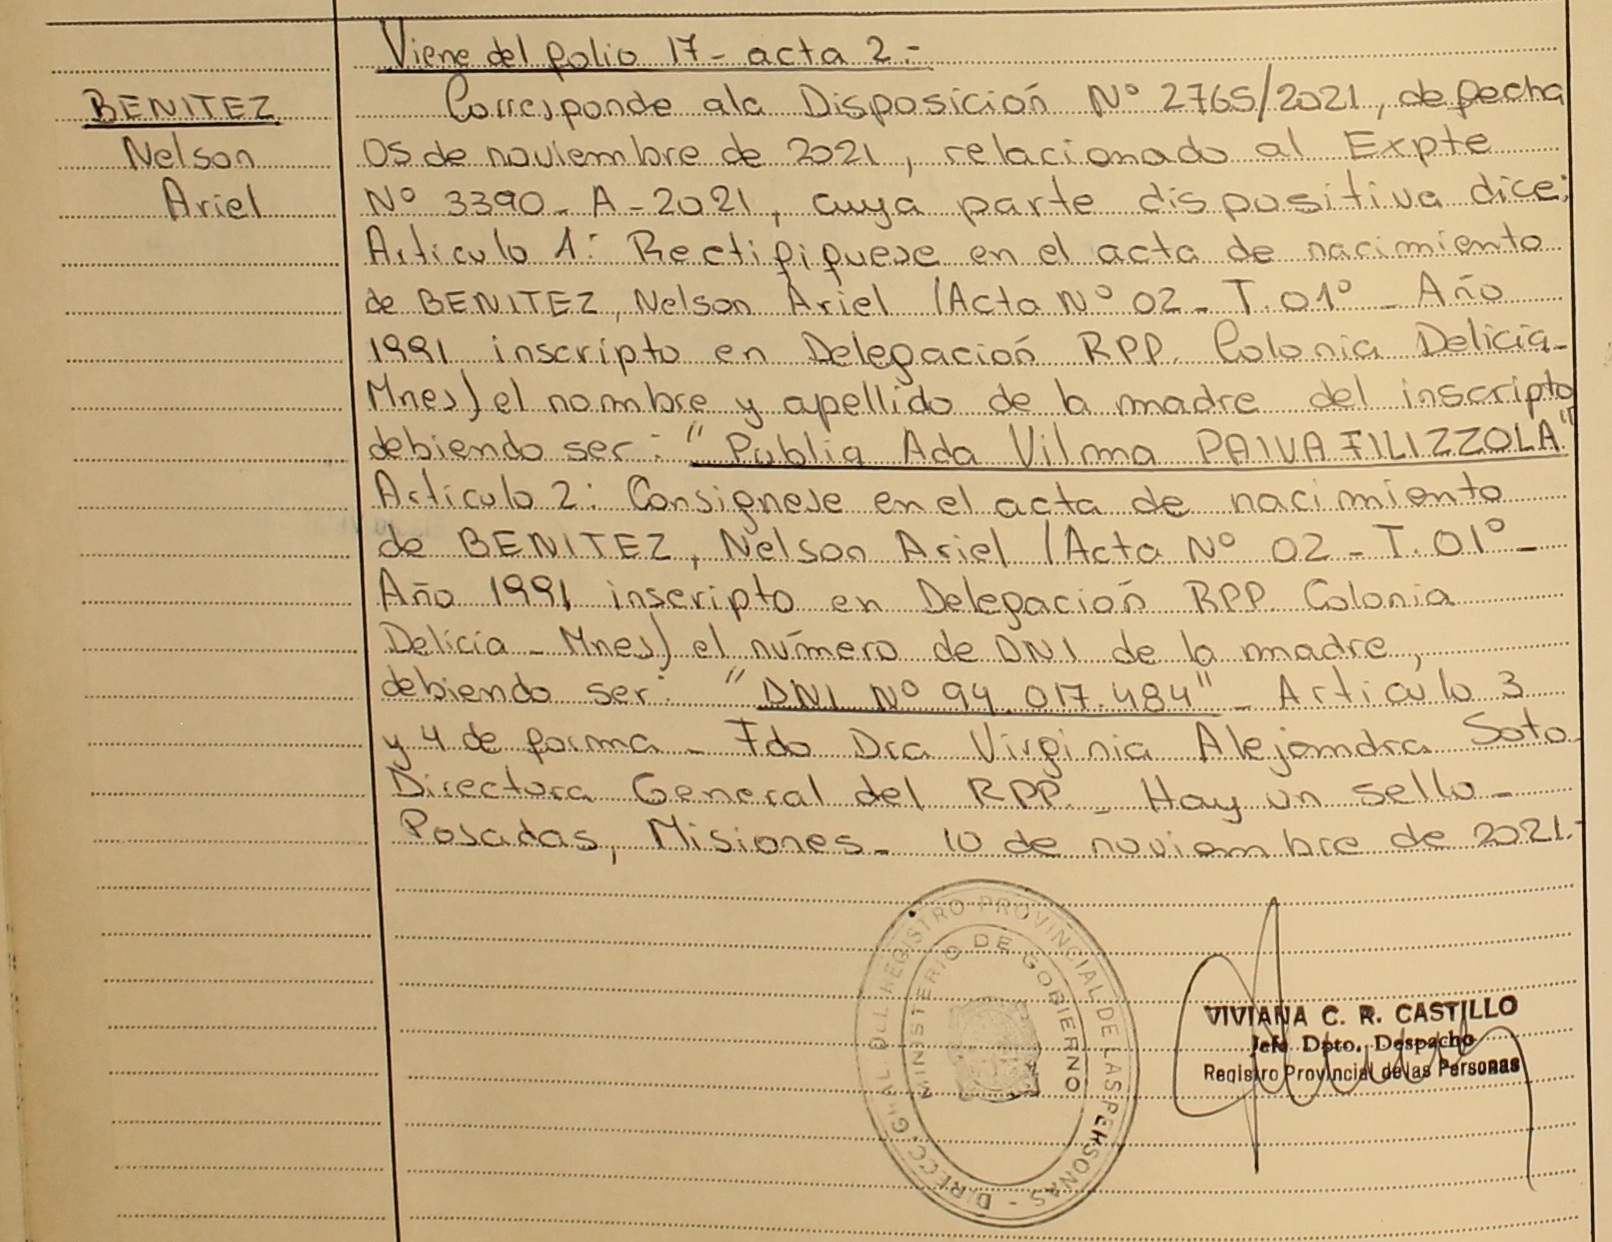 Viene del folio 17 - acta 2.-
BENITEZ
Nelson
Ariel
Corresponde a la Disposición Nº 2765/2021, de fecha
05 de noviembre de 2021, relacionado al Expte
Nº 3390 - A - 2021, cuya parte dispositiva dice:
Artículo 1: Rectifíquese en el acta de nacimiento
de BENITEZ, Nelson Ariel (Acta Nº 02 - T. 01º - Año
1991 inscripto en Delegación RPP. Colonia Delicia -
Mnes) el nombre y apellido de la madre del inscripto
debiendo ser: "Publia Ada Vilma PAIVA FILIZZOLA"
Artículo 2: Consígnese en el acta de nacimiento
de BENITEZ, Nelson Ariel (Acta Nº 02 - T. 01º -
Año 1991 inscripto en Delegación RPP. Colonia
Delicia - Mnes) el número de DNI de la madre,
debiendo ser: "DNI Nº 94.017.484" - Artículo 3
y 4 de forma - Fdo Dra Virginia Alejandra Soto
Directora General del RPP. - Hay un sello -
Posadas, Misiones - 10 de noviembre de 2021.-
DIRECC. GRAL DEL REGISTRO PROVINCIAL DE LAS PERSONAS -
MINISTERIO DE GOBIERNO
VIVIANA C. R. CASTILLO
Jefe Dpto. Despacho
Registro Provincial de las Personas